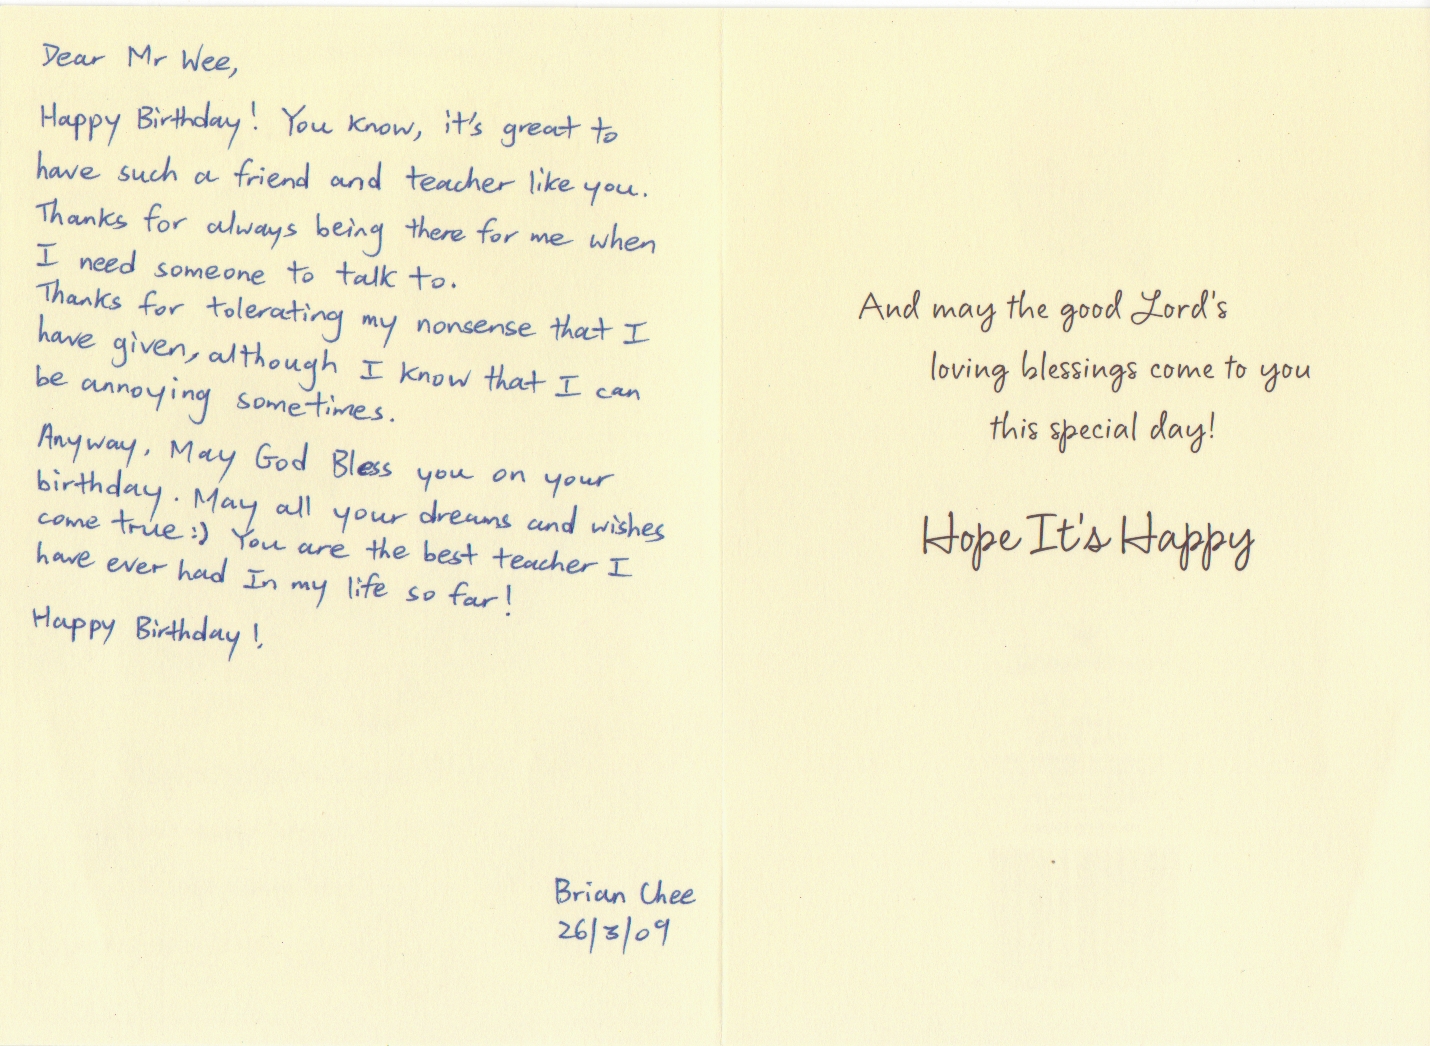 Dear Mr Wee,
Happy Birthday! You know, it's great to
have such a friend and teacher like you.
Thanks for always being there for me when
I need someone to talk to.
Thanks for tolerating my nonsense that I
have given, although I know that I can
be annoying sometimes.
Anyway, May God Bless you on your
birthday. May all your dreams and wishes
come true :) You are the best teacher I
have ever had In my life so far!
Happy Birthday!
Brian Chee
26/3/09
And may the good Lord's
loving blessings come to you
this special day!
Hope It's Happy